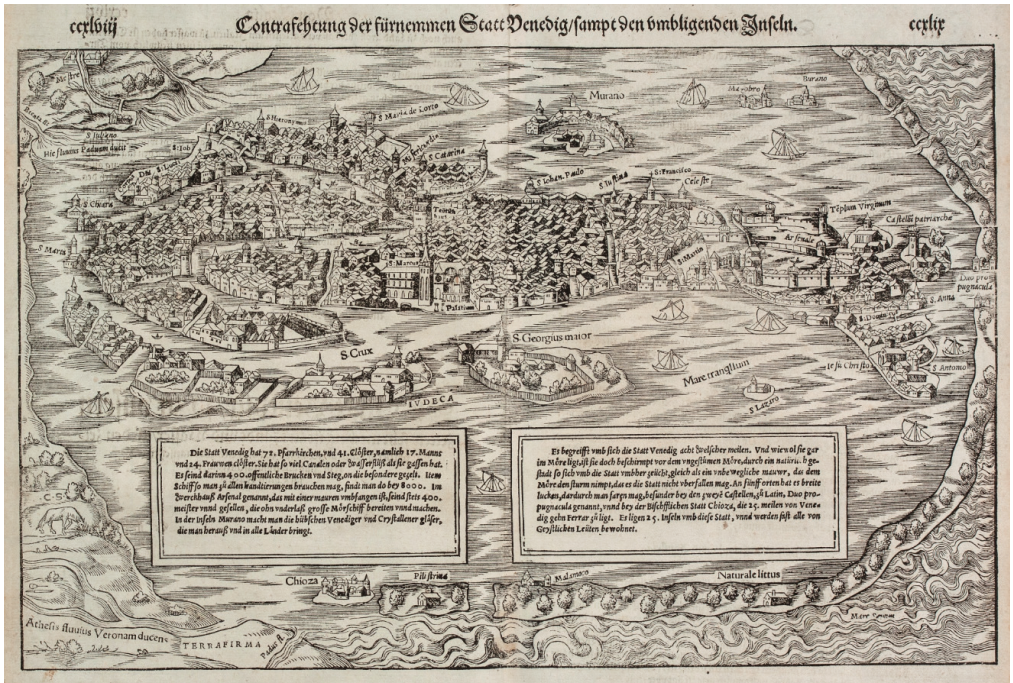 ccxlviij
Contrafehtung der fürnemmen Statt Venedig/sampt den vmbligenden Inseln.
ccxlix
Mestre
S. Iuliano
Hic fluuius Paduam ducit
S: Iob
S Hieronymus
S Maria de Lorto
S Catarina
Murano
Burano
S Chiara
S Maria
S Iohan. Paulo
S Iustina
S: Francisco
Celestr
Tēplum Virginum
Castellū patriarchæ
Arsenale
S Martin
S Marcus
Palatium
Duo propugnacula
S. Anna
S Antonio
Iesu Christo
S Crux
S Georgius maior
IVDECA
Mare tranqllum
S Lazaro
Die Statt Venedig hat 72. Pfarrkirchen, vnd 41. Clöster, nämlich 17. Manns
vnd 24. Frauwen clöster. Sie hat so viel Canalen oder Wasserflüß als sie gassen hat.
Es seind darinn 400. offentliche Brucken vnd Steg, on die besondere gezelt. Item
Schiff so man zů allen handtierungen brauchen mag, findt man do bey 8000. Im
Werckhauß Arsenal genannt, das mit einer mauren vmbfangen ist, seind stets 400.
meister vnnd gesellen, die ohn vnderlaß grosse Mörschiff bereiten vnnd machen.
In der inseln Murano macht man die hübschen Venediger vnd Crystalliner gläser,
die man herauß vnd in alle Länder bringt.
Es begreifft vmb sich die Statt Venedig acht Welscher meilen. Vnd wiewol sie gar
im Möre ligt, ist sie doch beschirmpt vor dem vngestümen Möre, durch ein natürli h ge-
stalt so sich vmb die Statt vmbher zeücht, gleich als ein vnbewegliche mauwr, das dem
Möre den sturm nimpt, das es die Statt nicht vberfallen mag. An fünff orten hat es breite
lucken, dardurch man faren mag, besunder bey den zweyē Castellen, zů Latin, Duo pro-
pugnacula genannt, vnnd bey der Bischfflichen Statt Chioza, die 25. meilen von Vene-
dig gehn Ferrar zů ligt. Es ligen 25. Inseln vmb diese Statt, vnnd werden fast alle von
Geystlichen Leüten bewohnet.
Chioza
Pilistrina
Malamoco
Naturale littus
Athesis fluuius Veronam ducens
TERRA FIRMA
Padus fl.